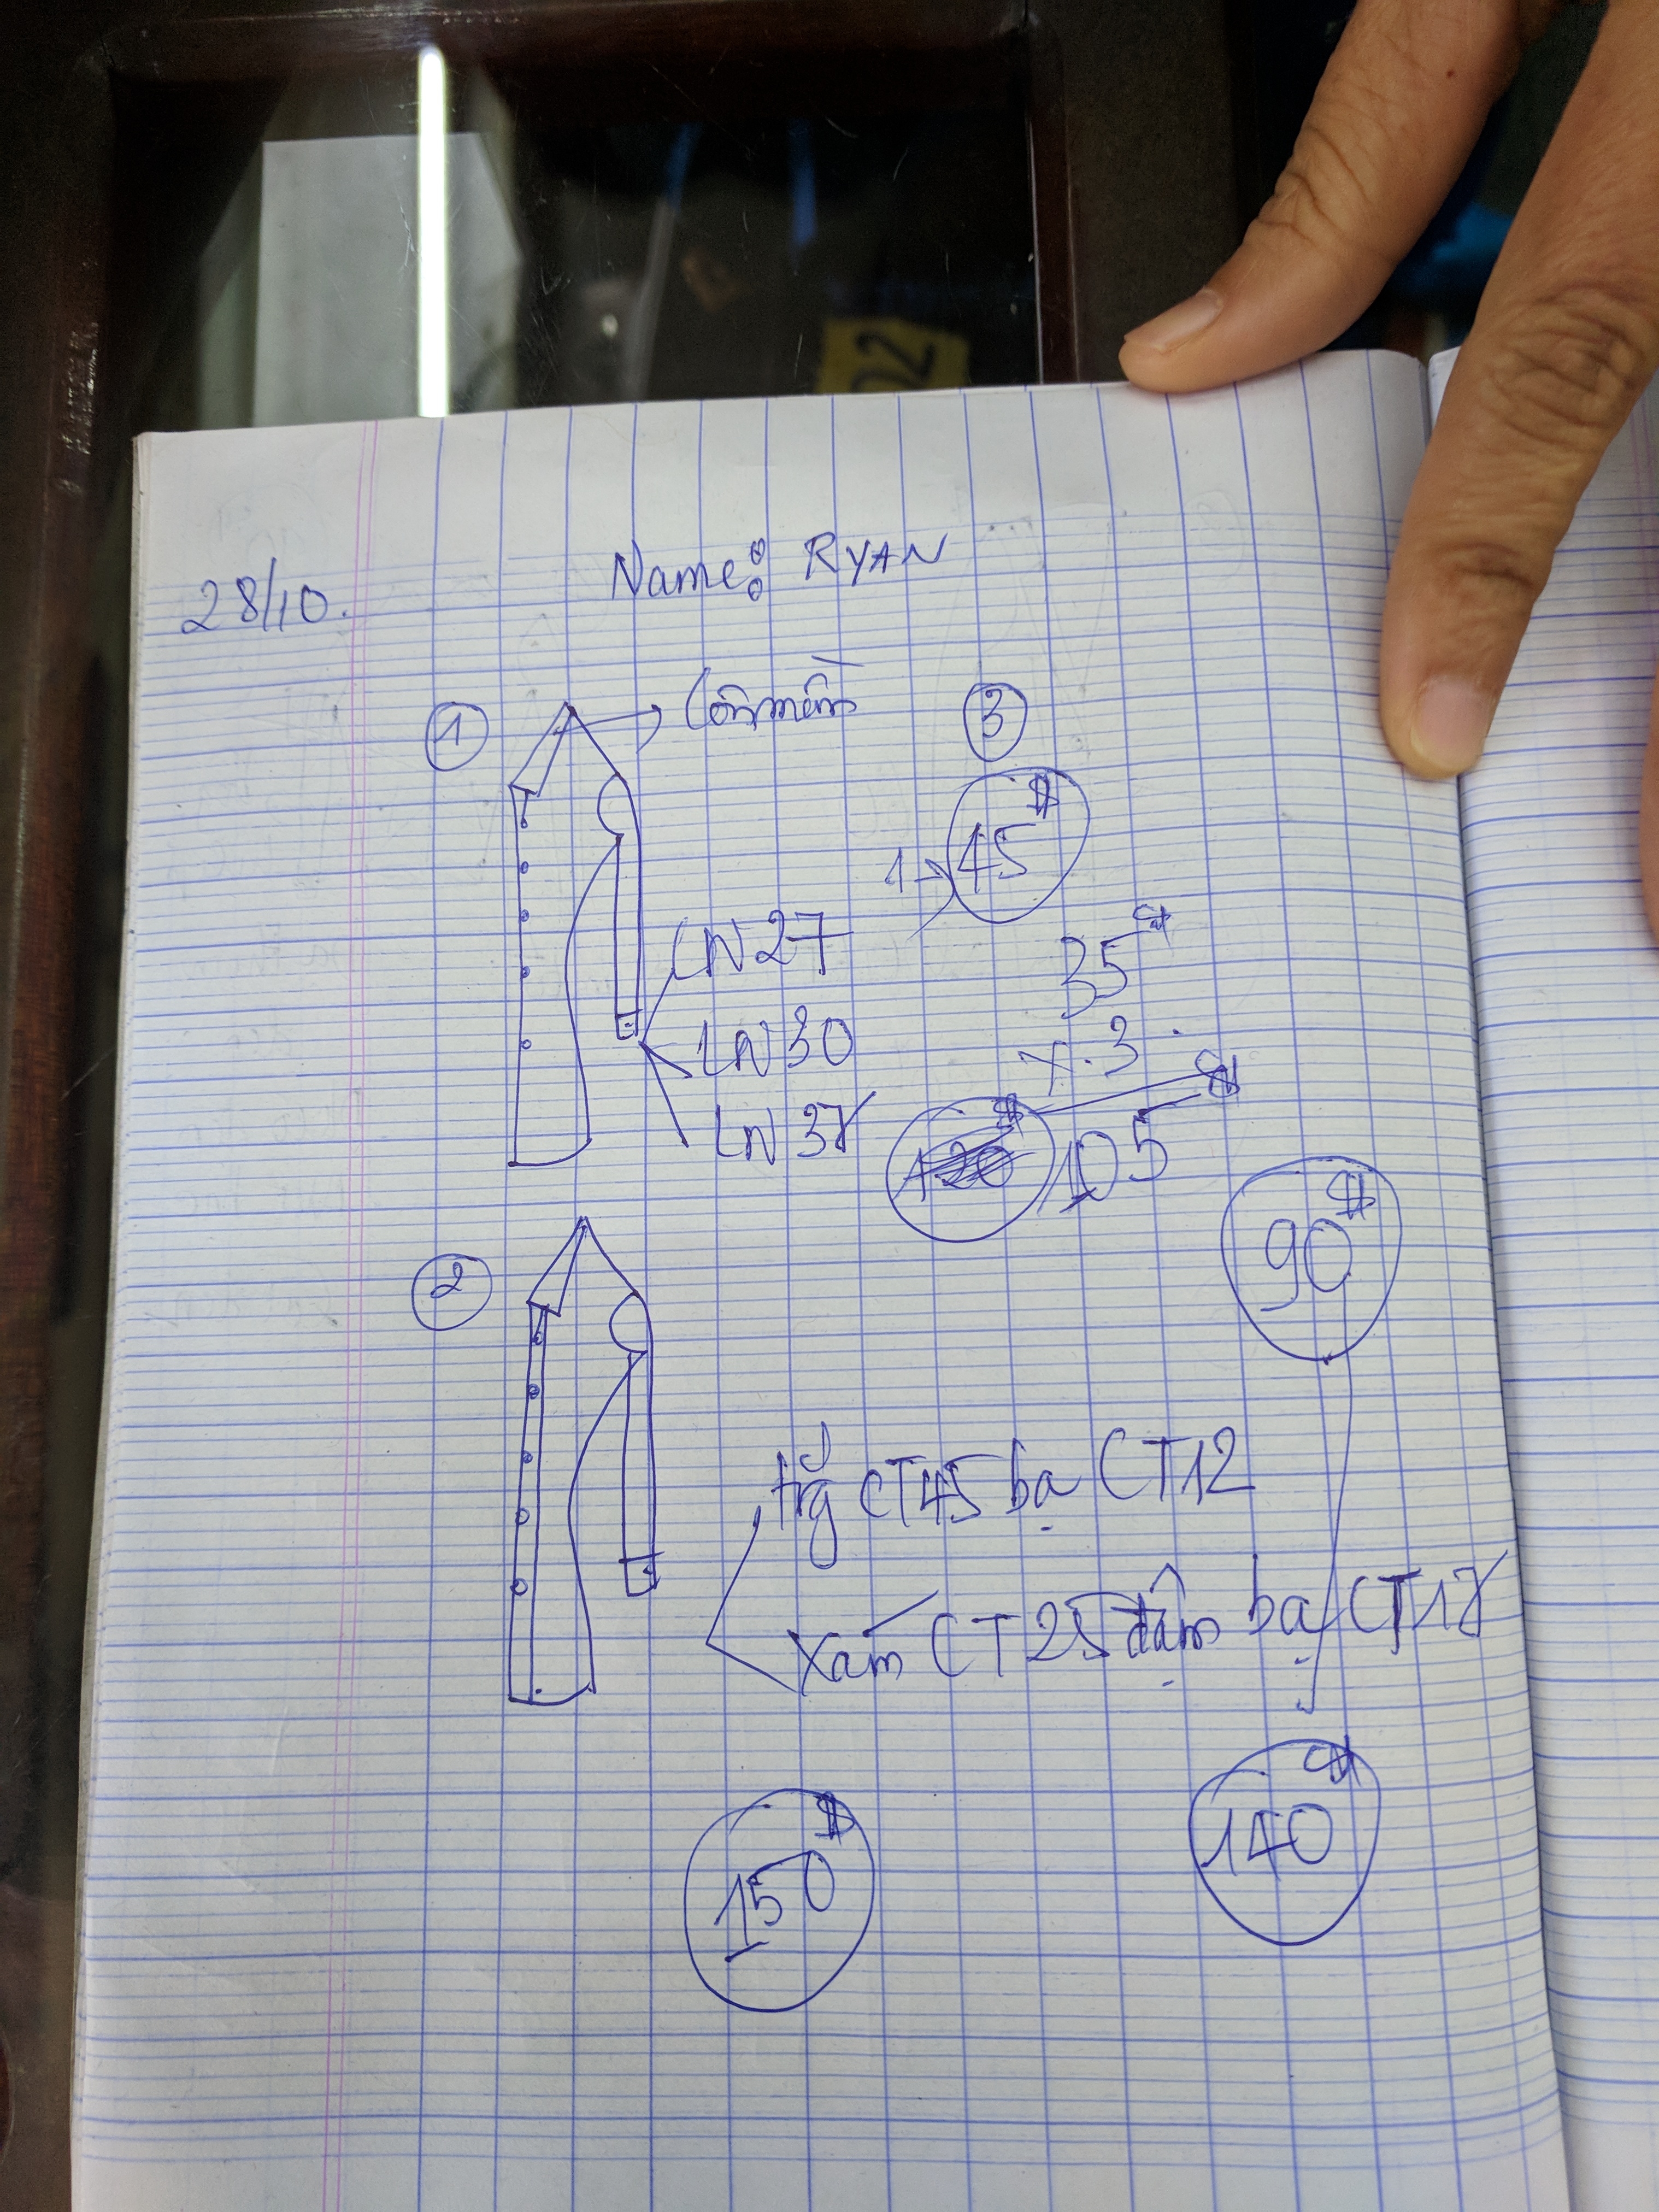 Name: RYAN
28/10.
1
3
45$
1→
LN27
35$
LN30
x.3
LN37
120$
105$
90$
2
trg CT45 bạ CT12
Xám CT25 đậm bạ CT17
140$
150$
02